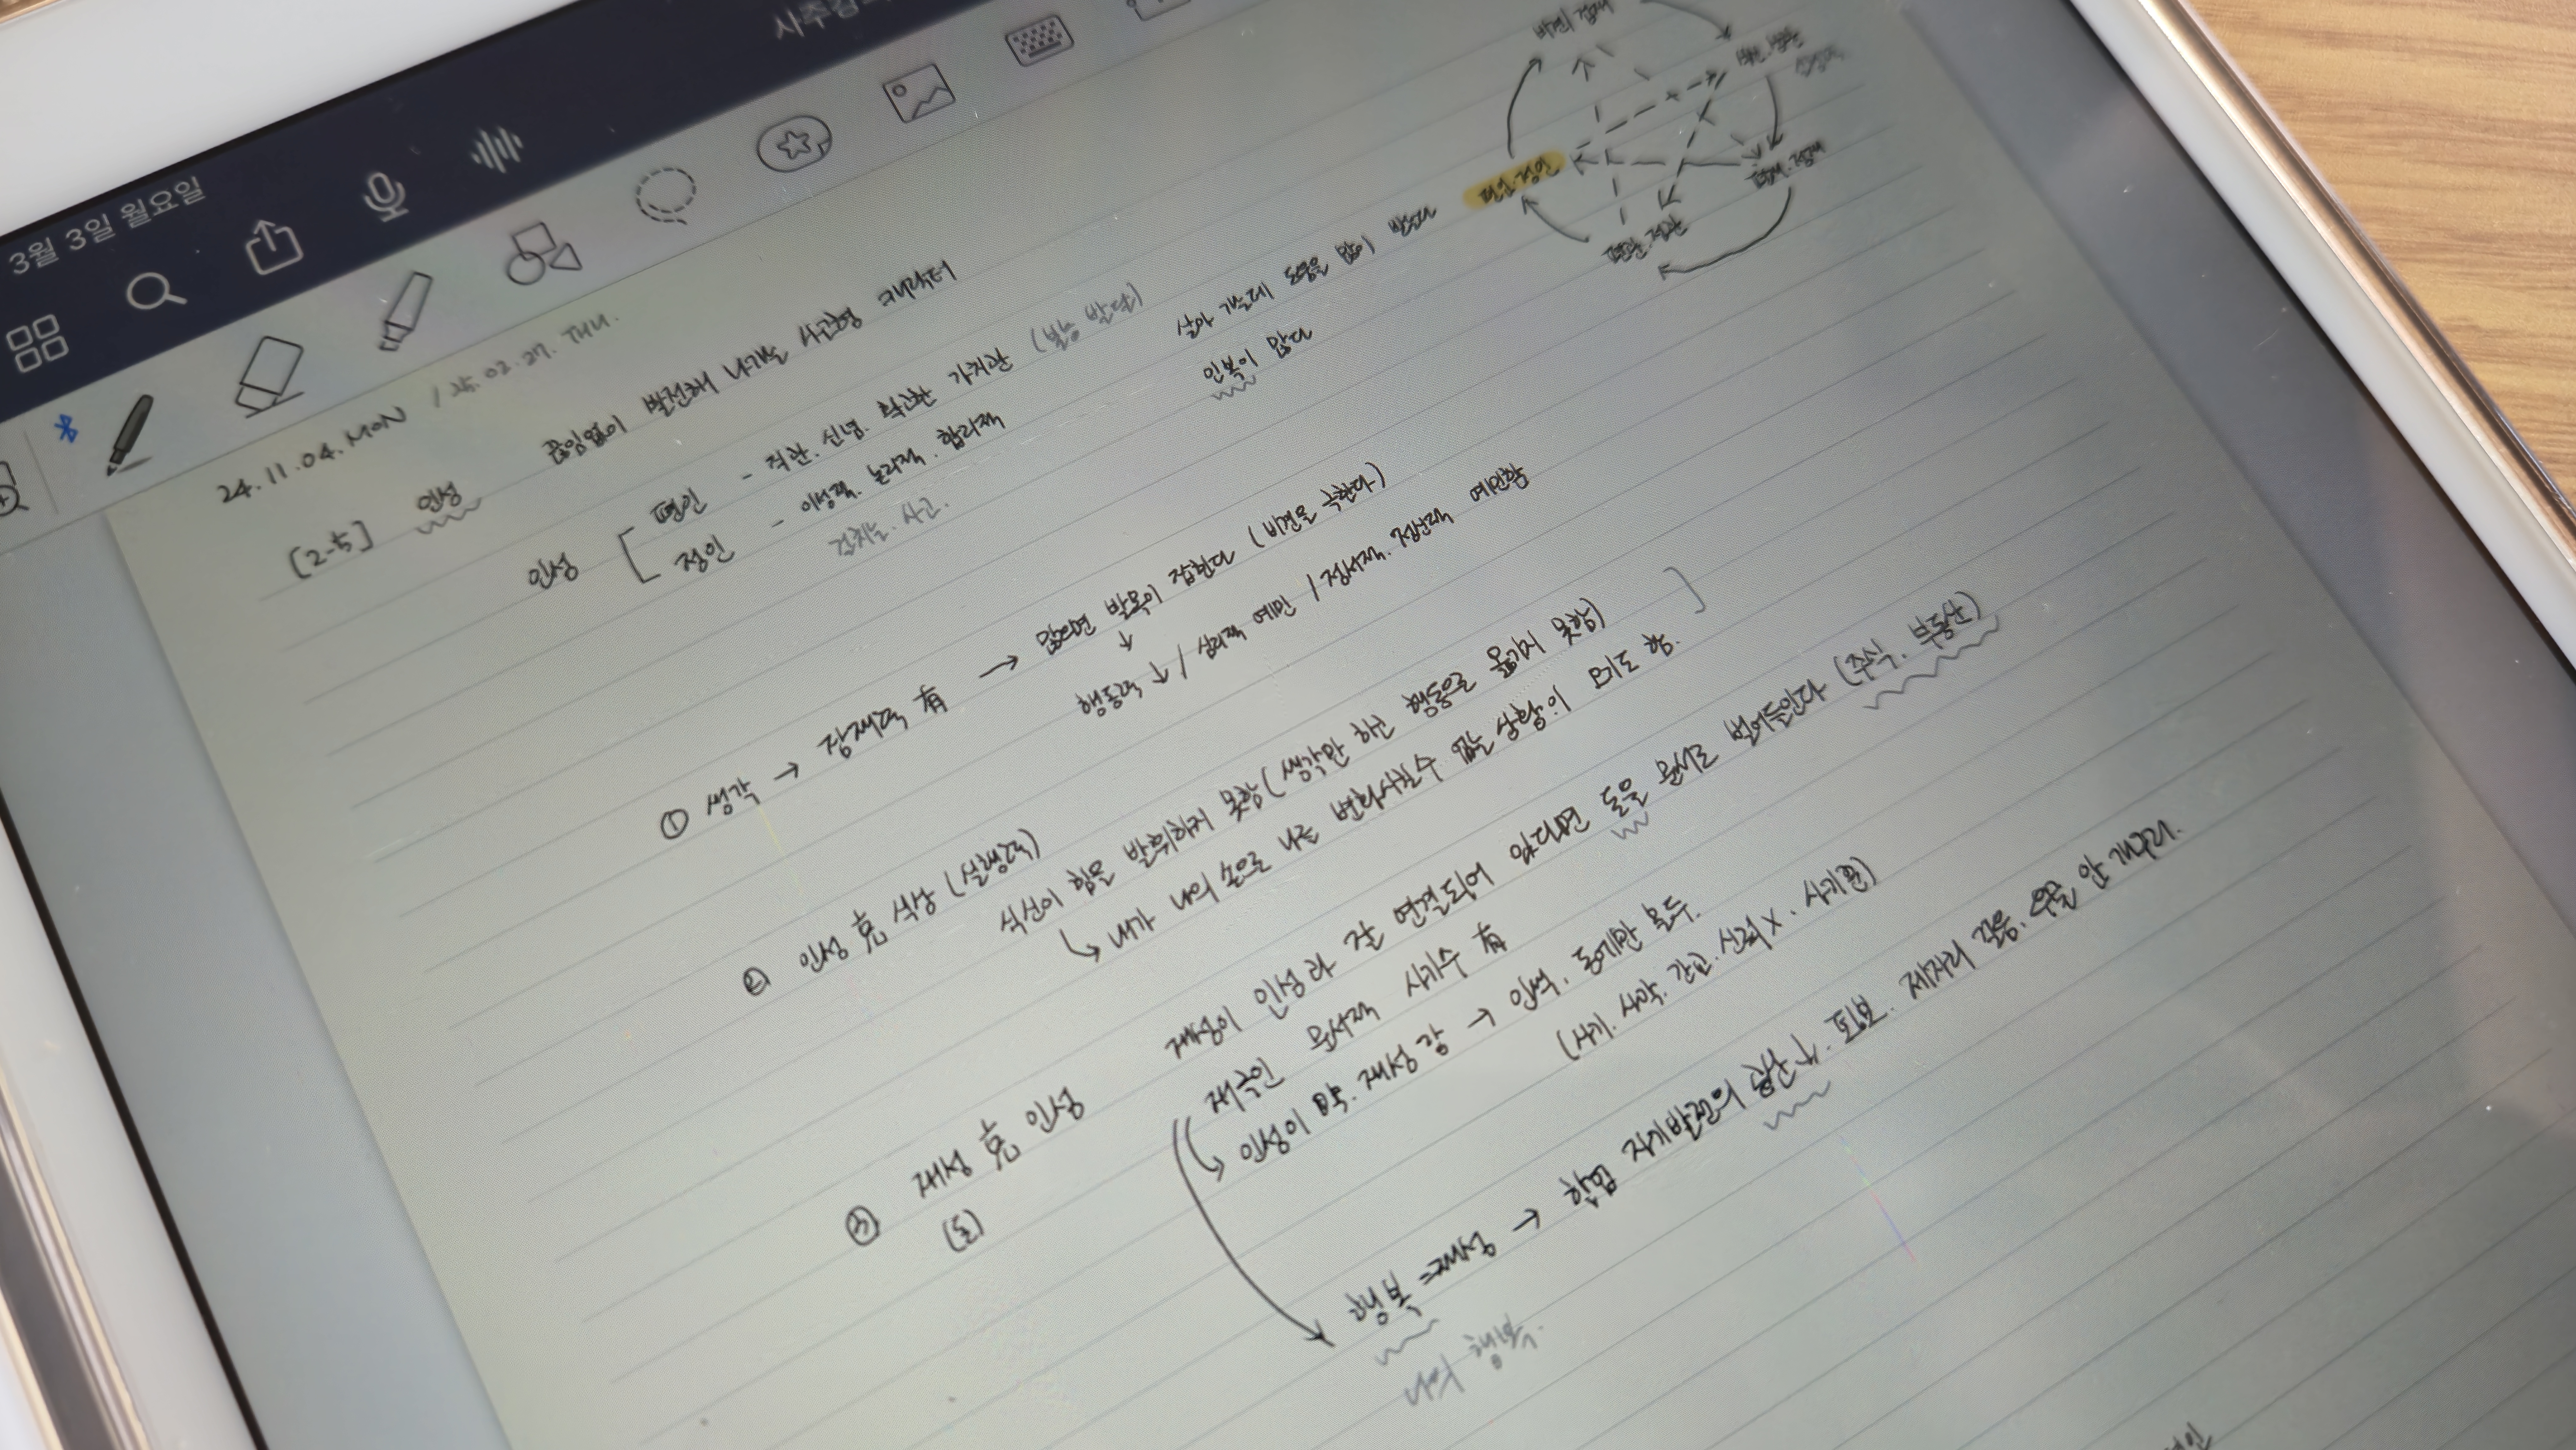 3월 3일 월요일
24.11.04.MON / 25.02.27.THU.
[2-5] 인성 끊임없이 발전해 나가는 사고형 캐릭터
비견.겁재
편재.정재
편관.정관
편인.정인
인성 [ 편인 - 직관. 신념. 확고한 가치관 (본능 발달)
정인 - 이성적. 논리적. 합리적
사고.
살아 가는데 도움을 많이 받는다
인복이 많다
① 생각 → 잠재력 有 → 많다면 발목이 잡힌다 (비견을 극한다)
↓
행동력 ↑ / 심리적 예민 / 정서적. 정신적 예민함
② 인성 克 식상 (실행력)
식신이 힘을 발휘하지 못함 (생각만 하고 행동으로 옮기지 못함) ]
↳ 내가 나의 손으로 나를 변화시킬수 없는 상황.이 되기도 함.
③ 재성 克 인성 재성이 인성과 잘 연결되어 있다면 돈을 문서로 벌어들인다 (주식. 부동산)
(돈) 재극인 문서적 사기수 有
↳ 인성이 약. 재성 강 → 인색. 돈에만 몰두.
(사기. 사악. 간교. 신뢰X. 사기꾼)
행복 = 재성 → 학업 자기발전의 생산↓. 퇴보. 제자리 걸음. 우물 안 개구리.
나의 행복.